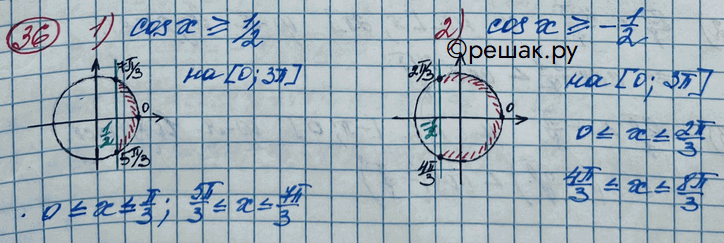 36 1) cos x ≥ 1/2
на [0; 3π]
7π/3
0
1/2
5π/3
0 ≤ x ≤ π/3; 5π/3 ≤ x ≤ 7π/3
2) cos x ≥ -1/2
©решак.ру
на [0; 3π]
2π/3
0
4π/3
0 ≤ x ≤ 2π/3
4π/3 ≤ x ≤ 8π/3